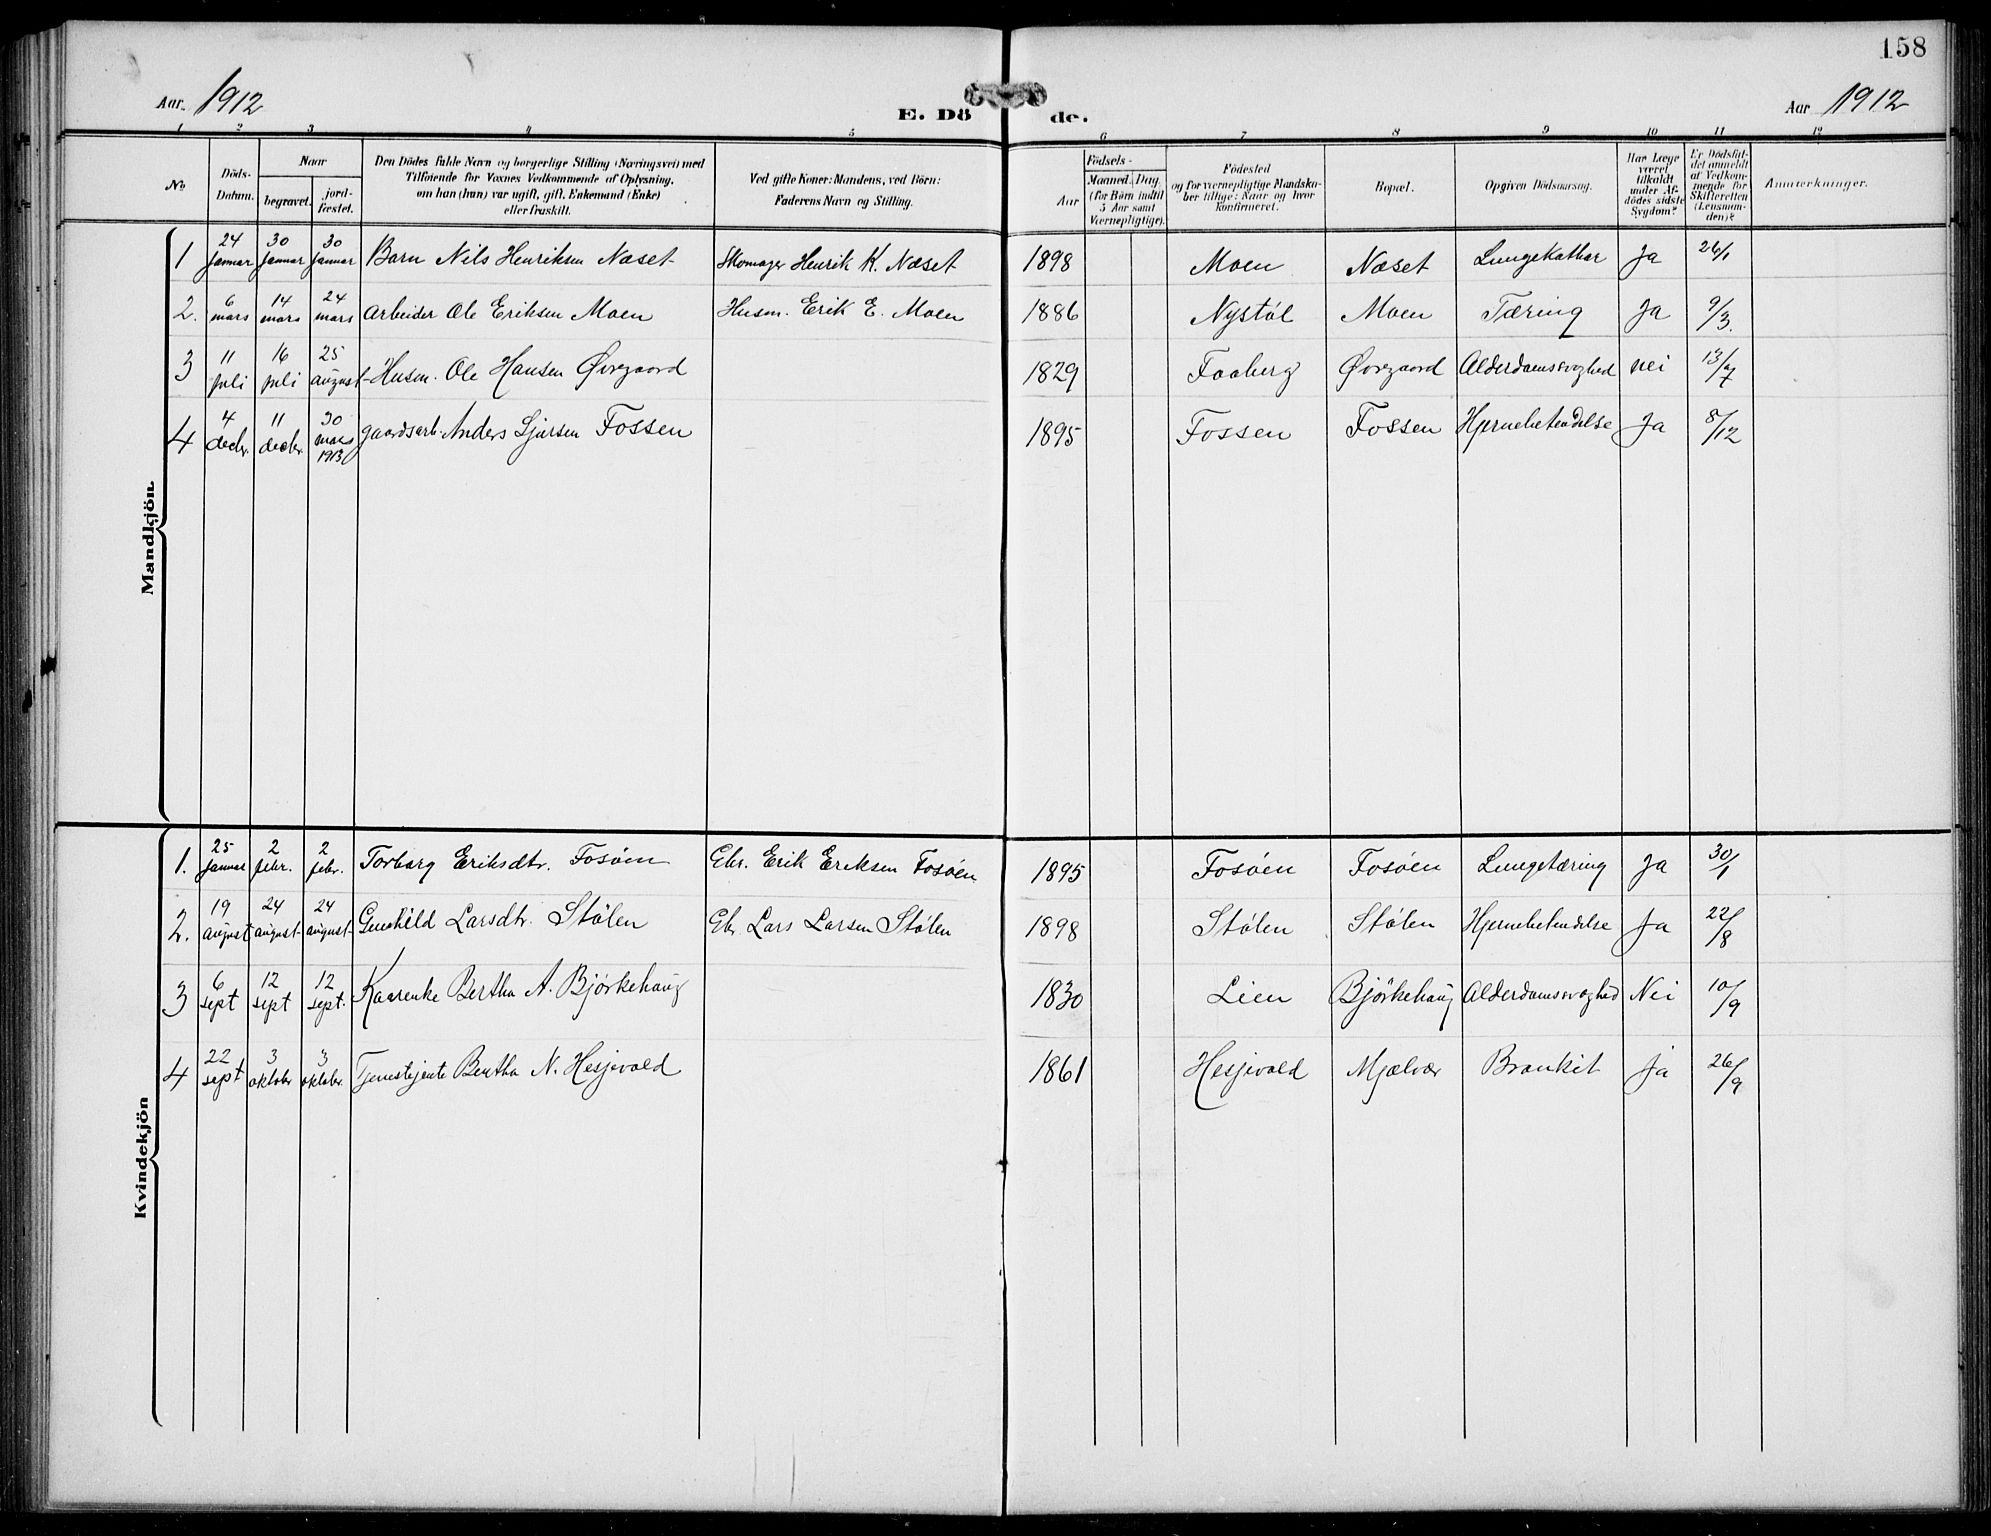 158
Aar 1912 E. Dö de. Aar 1912
1 2 3 4 5 6 7 8 9 10 11 12
No
Döds-Datum.
Naar
begravet.
jord-fæstet.
Den Dödes fulde Navn og borgerlige Stilling (Næringsvei) med
Tilföiende for Voxnes Vedkommende af Oplysning,
om han (hun) var ugift, gift, Enkemand (Enke)
eller fraskilt.
Ved gifte Koner: Mandens, ved Börn:
Faderens Navn og Stilling.
Födsels-
Aar
Maaned. Dag
(for Börn indtil
5 Aar samt
Værnepligtige).
Födested
og for værnepligtige Mandska-
ber tillige: Naar og hvor
konfirmeret.
Bopæl.
Opgiven Dödsaarsag.
Har Læge
været
tilkaldt
under Af-
dödes sidste
Sygdom?
Er Dödsfal-
det anmeldt
af Vedkom-
mende for
Skifteretten
(Lensman-
den)?
Anmærkninger.
Mandkjön.
1 24 Januar 30 Januar 30 Januar Barn Nils Henriksen Næset Skomager Henrik K. Næset 1898 Moen Næset Lungekathar Ja 26/1
2. 6 mars 14 mars 24 mars Arbeider Ole Eriksen Moen Husm. Erik E. Moen 1886 Nystøl Moen Tæring Ja 9/3.
3 11 juli 16 juli 25 august Husm. Ole Hansen Øvregaard 1829 Faaberg Øvregaard Alderdamssvaghed nei 13/7
4 4 decbr. 11 decbr. 30 mars 1913 gaardsarb. Anders Sjursen Fossen 1895 Fossen Fossen Hjernebetendelse Ja 8/12
Kvindekjön
1. 25 Januar 2 febr. 2 febr. Torbørg Eriksdtr. Fosøen Gbr. Erik Eriksen Fosøen 1895 Fosøen Fosøen Lungetæring Ja 30/1
2. 19 august 24 august 24 august Gunhild Larsdtr. Stølen Gbr. Lars Larsen Stølen 1898 Stølen Stølen Hjernebetendelse Ja 22/8
3 6 sept 12 sept 12 sept. Kaarenke Bertha A. Bjørkehaug 1830 Lien Bjørkehaug Alderdamssvaghed Nei 10/9
4 22 sept 3 oktober 3 oktober. Tjenestejente Bertha N. Hesjevold 1861 Hesjevold Mjælvær Bronkit Ja 26/9